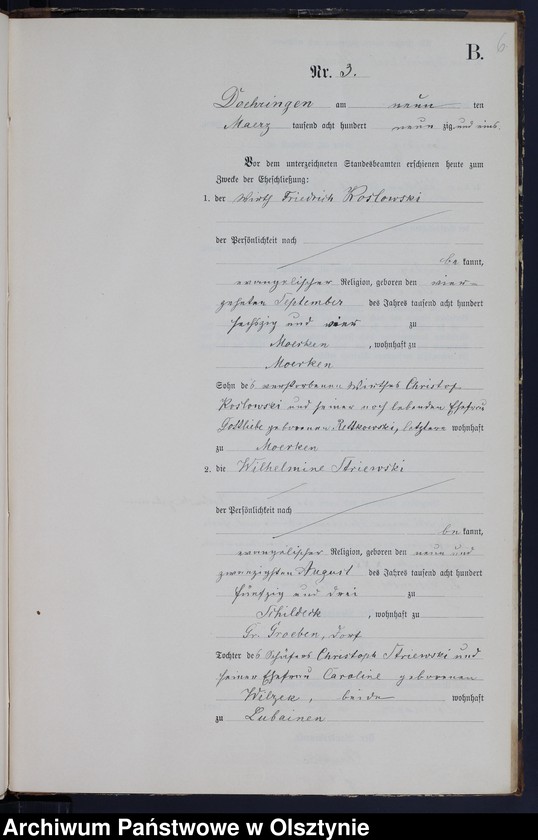 B. 6
Nr. 3.
Doehringen am neun ten
Maerz tausend acht hundert neun zig und eins.
Vor dem unterzeichneten Standesbeamten erschienen heute zum
Zwecke der Eheschließung:
1. der Wirth Friedrich Koslowski
der Persönlichkeit nach
be kannt,
evangelischer Religion, geboren den vier-
zehnten September des Jahres tausend acht hundert
sechszig und vier zu
Moerken , wohnhaft zu
Moerken
Sohn des verstorbenen Wirthes Christof
Koslowski und seiner noch lebenden Ehefrau
Gottliebe geborenen Rettkowski, letztere wohnhaft
zu Moerken
2. die Wilhelmine Striewski
der Persönlichkeit nach
be kannt,
evangelischer Religion, geboren den neun und
zwanzigsten August des Jahres tausend acht hundert
fünfzig und drei zu
Schildeck , wohnhaft zu
Gr. Groeben, Dorf
Tochter des Schäfers Christoph Striewski und
seiner Ehefrau Caroline geborenen
Wilzek, beide wohnhaft
zu Lubainen
Archiwum Państwowe w Olsztynie